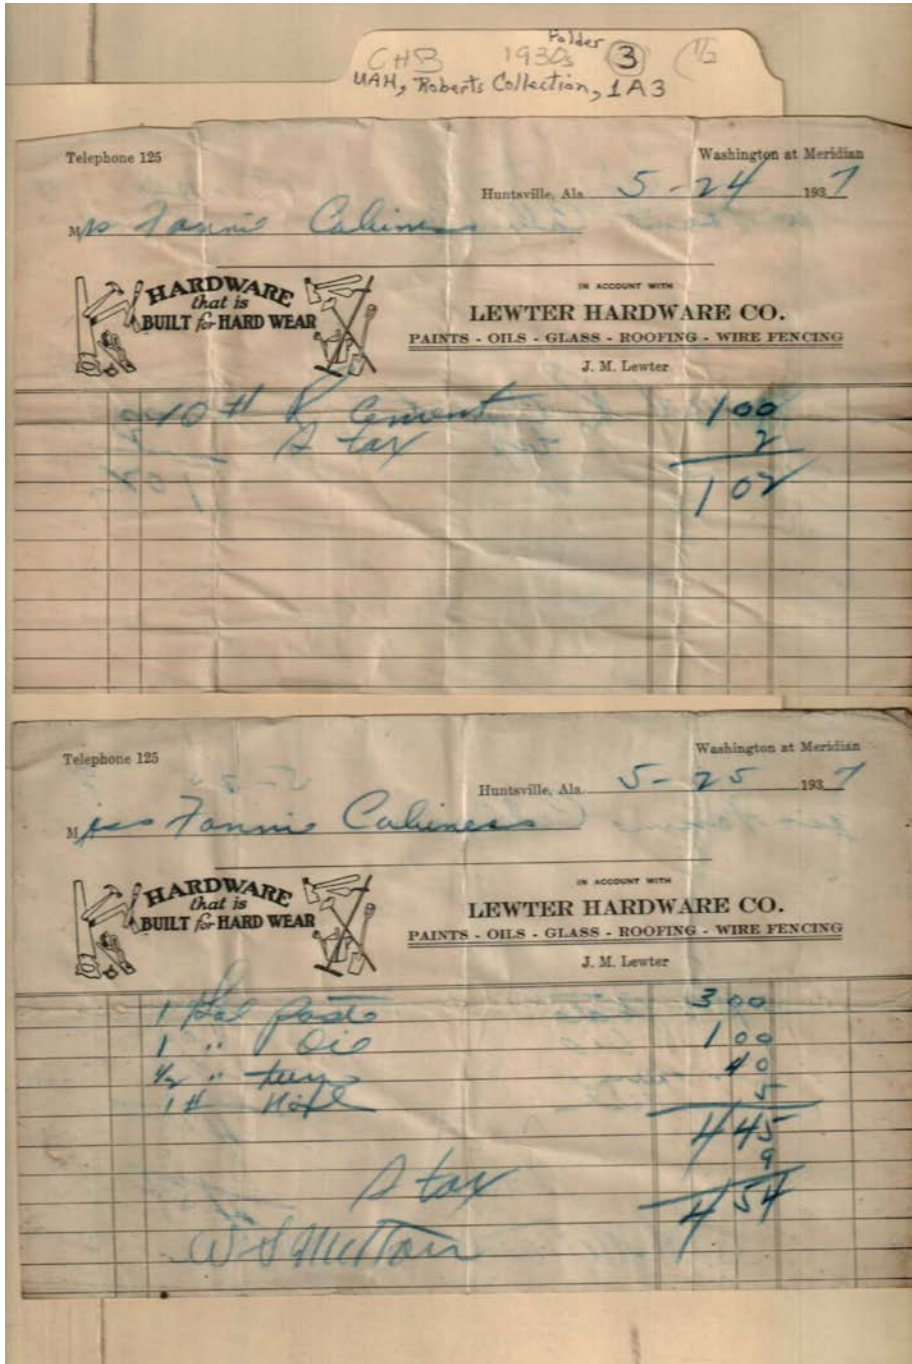 Folder
CHB 1930s 3 1/2
UAH, Roberts Collection, 1A3
Telephone 125 Washington at Meridian
Huntsville, Ala. 5-24 1937
Miss Fannie Cabiness
HARDWARE
that is
BUILT for HARD WEAR
IN ACCOUNT WITH
LEWTER HARDWARE CO.
PAINTS - OILS - GLASS - ROOFING - WIRE FENCING
J. M. Lewter
10 # R Cement 1 00
S tax 2
1 02
Telephone 125 Washington at Meridian
Huntsville, Ala. 5-25 1937
Miss Fannie Cabiness
HARDWARE
that is
BUILT for HARD WEAR
IN ACCOUNT WITH
LEWTER HARDWARE CO.
PAINTS - OILS - GLASS - ROOFING - WIRE FENCING
J. M. Lewter
1 Gal paste 3 00
1 " Oil 1 00
1/2 " turp 40
1 # 5
4 45
S tax 9
4 54